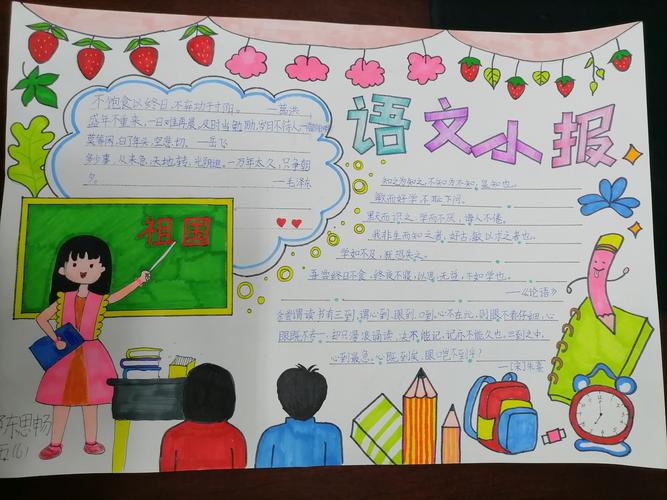 语文小报
不饱食以终日,不弃功于寸阴。 —葛洪
盛年不重来,一日难再晨,及时当勉励,岁月不待人
莫等闲,白了少年头,空悲切. —岳飞
多少事,从来急,天地转,光阴迫。一万年太久,只争朝
夕。 —毛泽东
祖国
知之为知之,不知为不知,是知也。
敏而好学,不耻下问。
默而识之,学而不厌,诲人不倦。
我非生而知之者,好古,敏以求之者也。
学如不及,犹恐失之。
吾尝终日不食,终夜不寝,以思,无益,不如学也。
—《论语》
余尝谓读书有三到,谓心到、眼到、口到,心不在此,则眼不看仔细,心
眼既不专一,却只漫浪诵读,决不能记,记亦不能久也,三到之中,
心到最急,心既到矣,眼口岂不到乎?
—[宋]朱熹
陈思畅